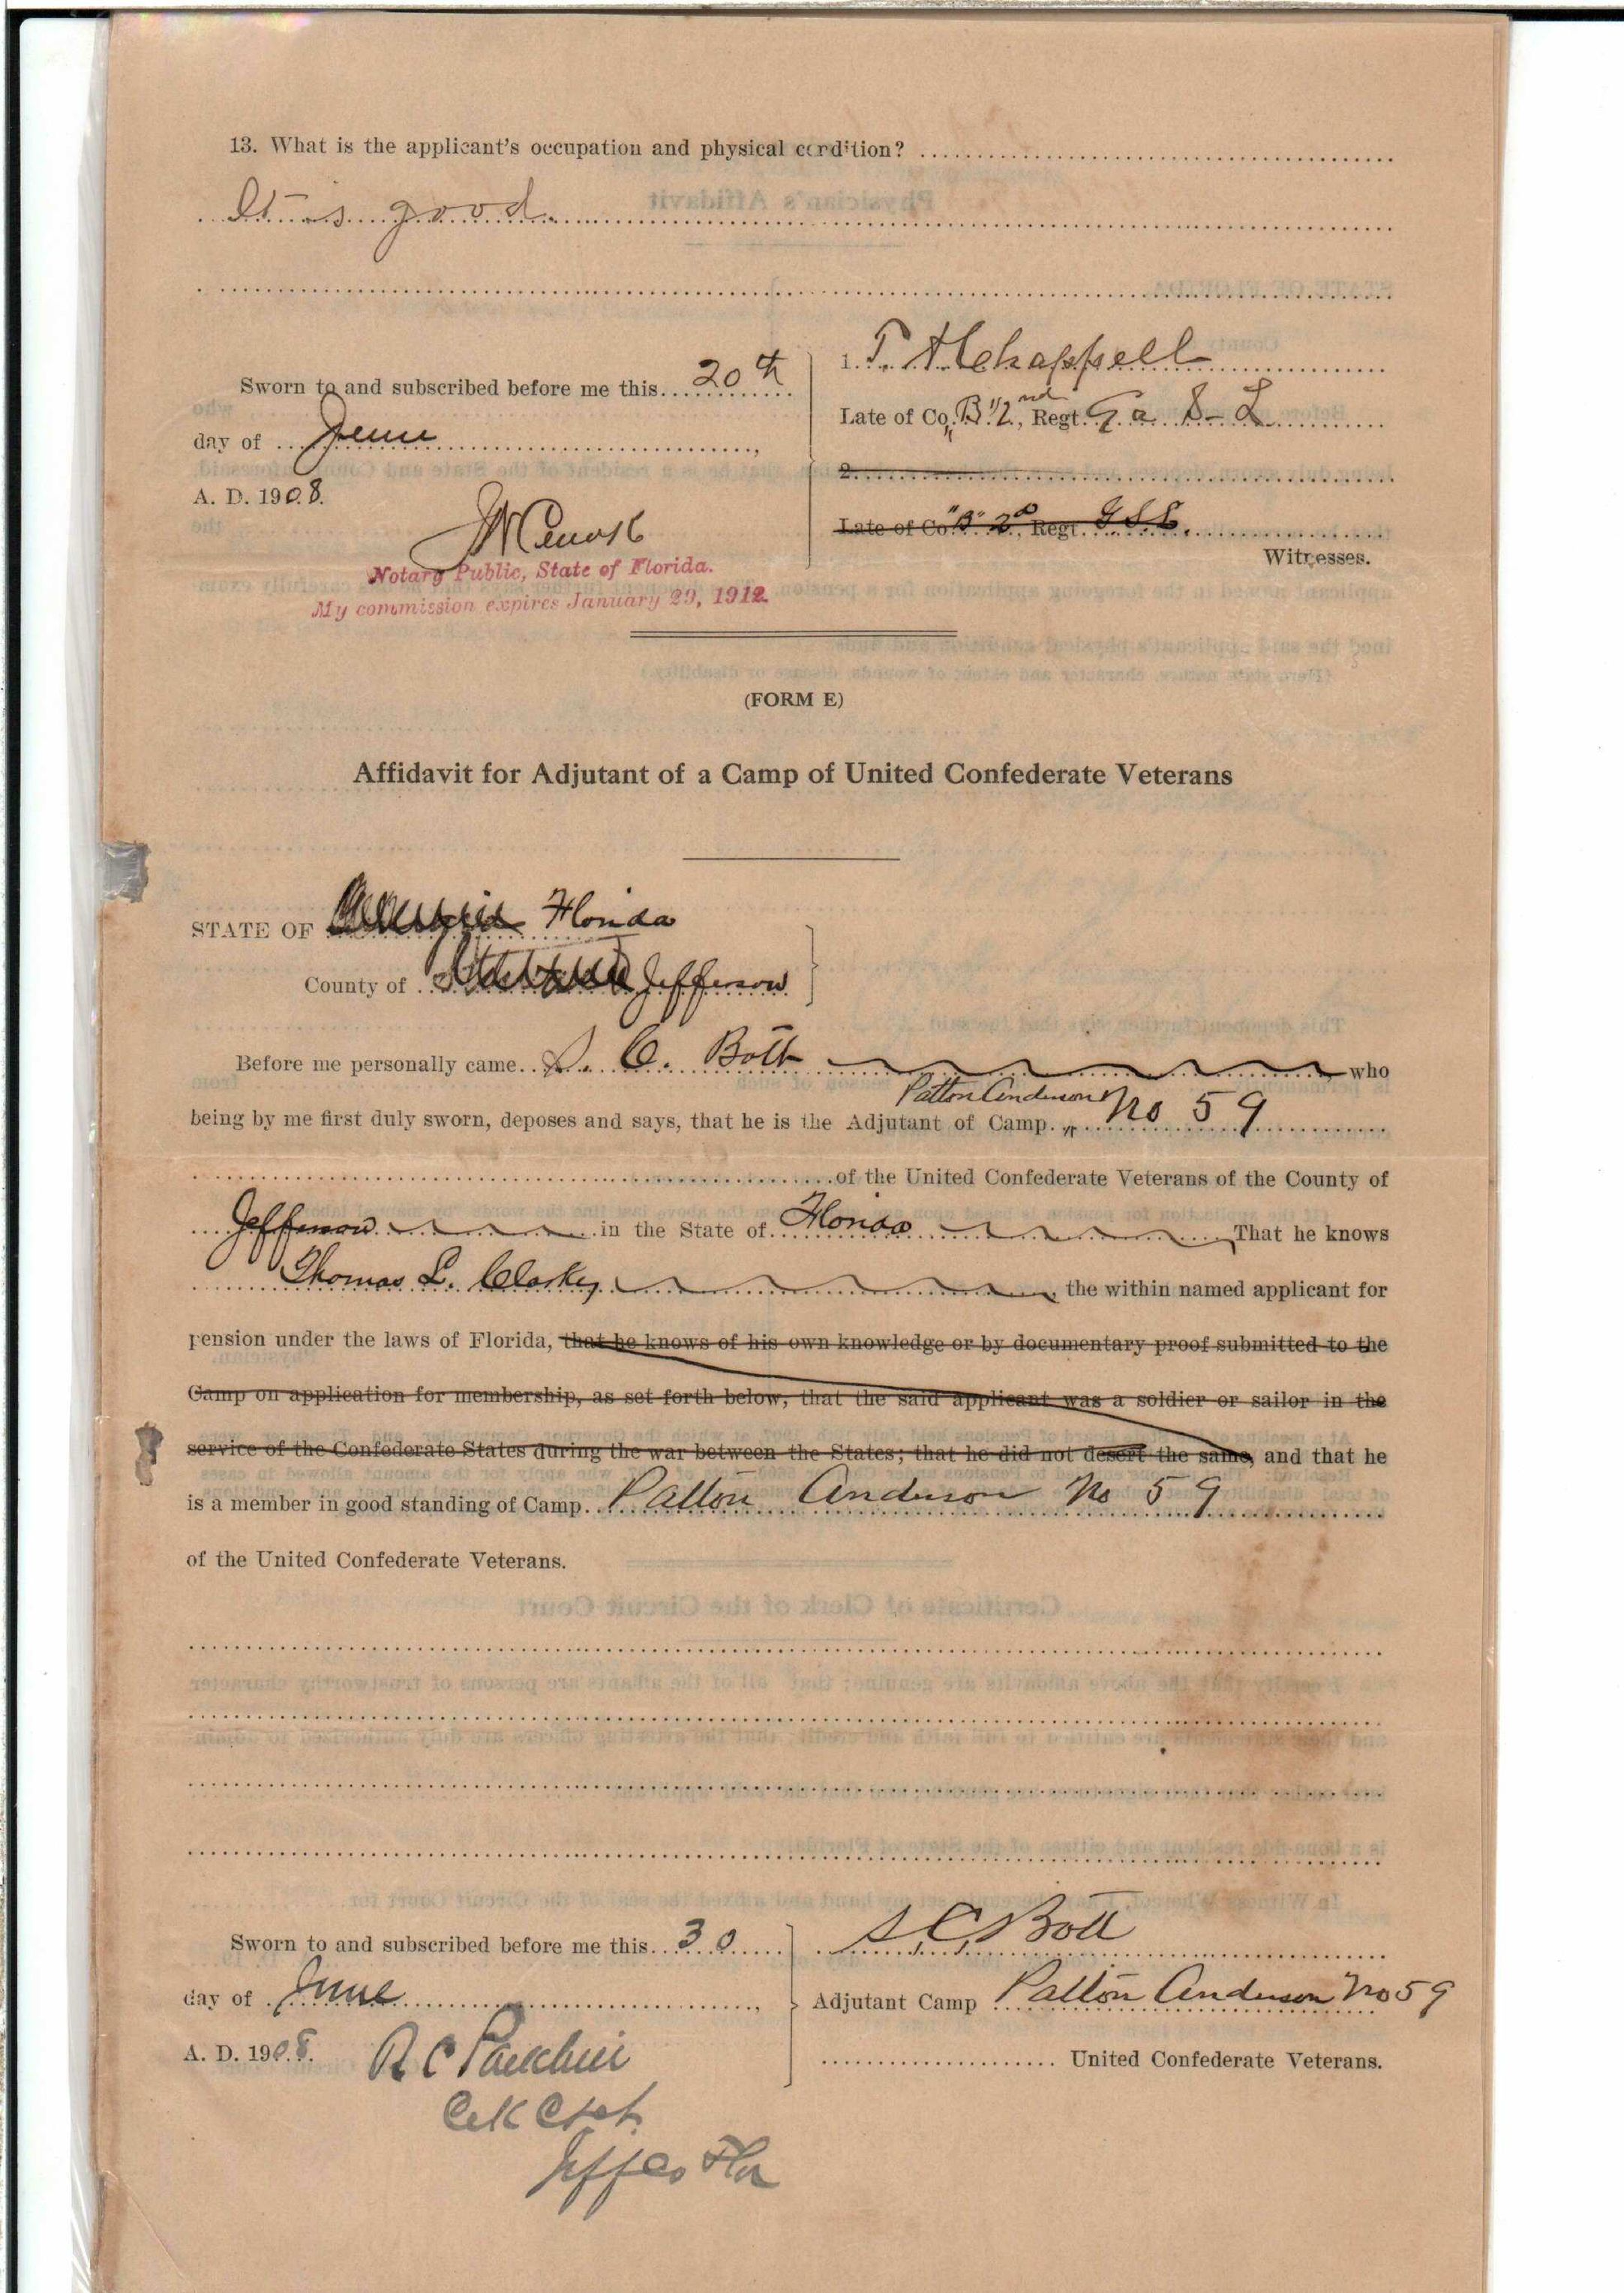 13. What is the applicant's occupation and physical condition?
It is good
Sworn to and subscribed before me this 20th
day of June,
A. D. 1908.
Notary Public, State of Florida.
My commission expires January 29, 1912.
1. T. H Chappell
Late of Co. "B" 2nd, Regt. Ga S-L
2.
Late of Co. "B" 2d, Regt. G S L.
Witnesses.
(FORM E)
Affidavit for Adjutant of a Camp of United Confederate Veterans
STATE OF Florida
County of Jefferson
Before me personally came S. C. Bott who
Patton Anderson
being by me first duly sworn, deposes and says, that he is the Adjutant of Camp No 59
of the United Confederate Veterans of the County of
Jefferson in the State of Florida That he knows
Thomas L. Clarke, the within named applicant for
pension under the laws of Florida, that he knows of his own knowledge or by documentary proof submitted to the
Camp on application for membership, as set forth below, that the said applicant was a soldier or sailor in the
service of the Confederate States during the war between the States; that he did not desert the same, and that he
is a member in good standing of Camp Patton Anderson No 59
of the United Confederate Veterans.
Sworn to and subscribed before me this 30
day of June,
A. D. 1908.
Clk C Ct
Jeff Co Fla
S C Bott
Adjutant Camp Patton Anderson No 59
United Confederate Veterans.